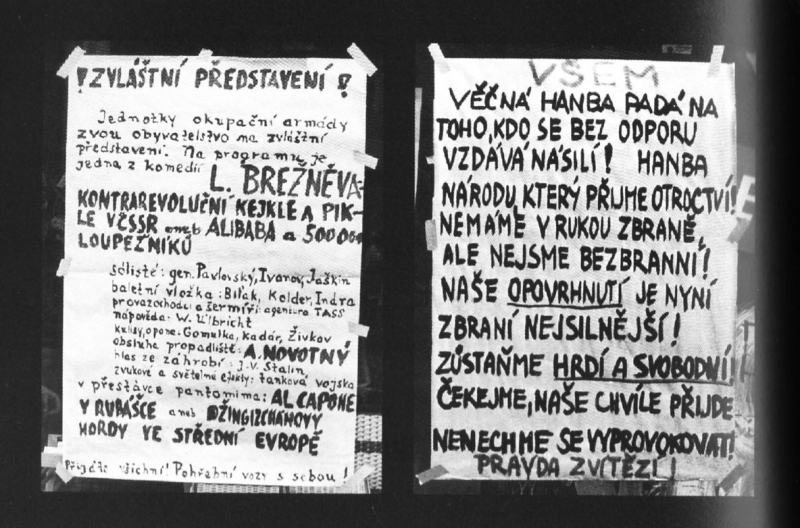 ! ZVLÁŠTNÍ PŘEDSTAVENÍ !
Jednotky okupační armády
zvou obyvatelstvo na zvláštní
představení. Na programu je
jedna z komedií
L. BREŽNĚVA-
KONTRAREVOLUČNÍ KEJKLE A PIK-
LE V ČSSR aneb ALIBABA a 500000
LOUPEŽNÍKŮ
sólisté: gen. Pavlovský, Ivanov, Jaškin
baletní vložka: Bilak, Kolder, Indra
provazochodci a šermíři: agentura TASS
nápověda: W. Ulbricht
kulisy, opona: Gomulka, Kadár, Živkov
obsluha propadliště: A. NOVOTNÝ
hlas ze záhrobí: J.V. Stalin,
zvukové a světelné efekty: tanková vojska
v přestávce pantomima: AL CAPONE
V RUBÁŠCE aneb DŽINGIZCHÁNOVY
HORDY VE STŘEDNÍ EVROPĚ
Přijďte všichni! Pohřební vozy s sebou!
VŠEM
VĚČNÁ HANBA PADÁ NA
TOHO, KDO SE BEZ ODPORU
VZDÁVÁ NÁSILÍ! HANBA
NÁRODU, KTERÝ PŘIJME OTROCTVÍ!
NEMÁME V RUKOU ZBRANĚ,
ALE NEJSME BEZBRANNÍ!
NAŠE OPOVRHNUTÍ JE NYNÍ
ZBRANÍ NEJSILNĚJŠÍ!
ZŮSTAŇME HRDÍ A SVOBODNÍ!
ČEKEJME, NAŠE CHVÍLE PŘIJDE
NENECHME SE VYPROVOKOVAT!
PRAVDA ZVÍTĚZÍ!